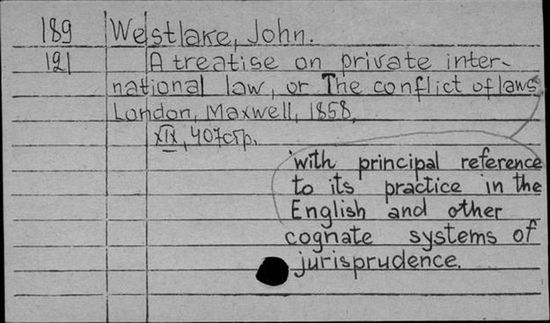 189 Westlake, John.
191 A treatise on private inter-
national law, or The conflict of laws
London, Maxwell, 1858,
XIX, 407стр.
with principal reference
to its practice in the
English and other
cognate systems of
jurisprudence.